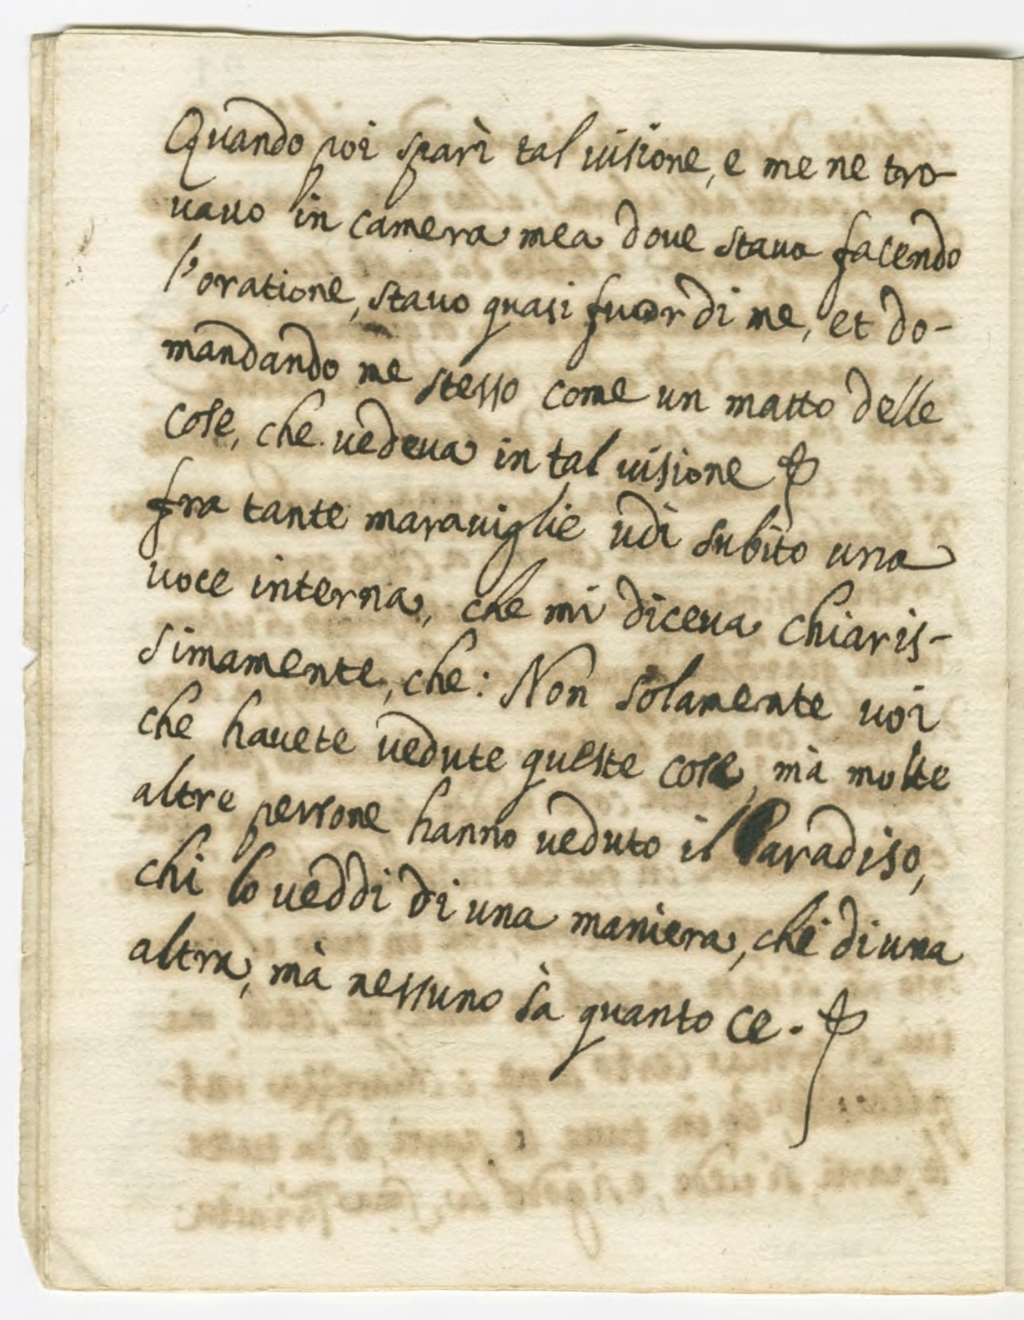 Quando poi sparì tal uisione, e me ne tro-
uauo in camera mea doue staua facendo
l'oratione, stauo quasi fuor di me, et do-
mandando me stesso come un matto delle
cose, che uedeua in tal uisione
fra tante marauiglie udi subito una
uoce interna, che mi diceua chiaris-
simamente, che: Non solamente uoi
che hauete uedute queste cose, mà molte
altre persone hanno ueduto il Paradiso,
chi lo ueddi di una maniera, chi di una
altra, mà nessuno sà quanto ce.